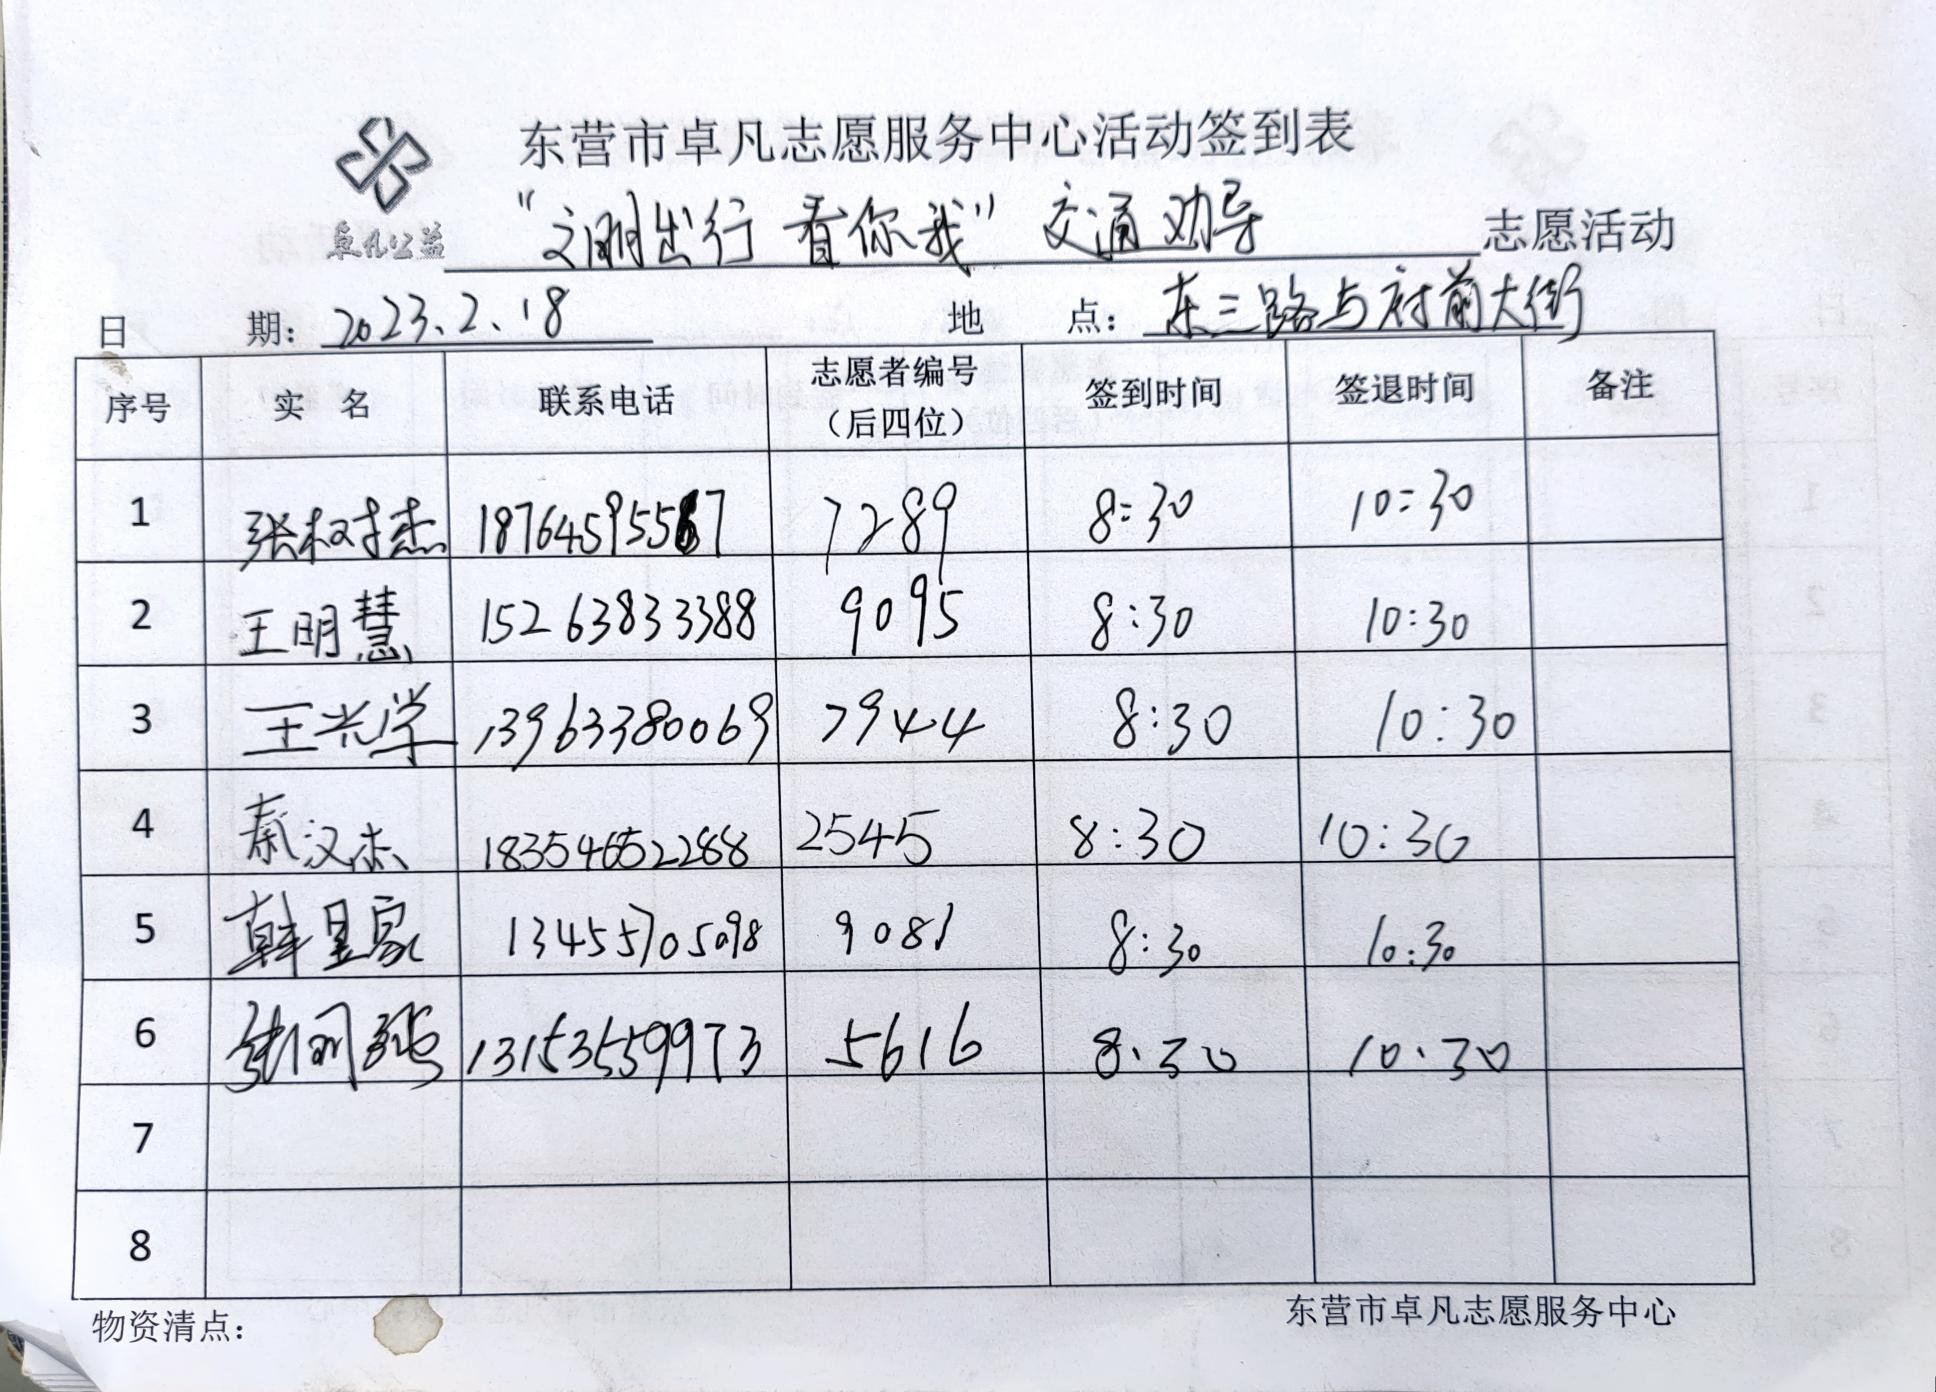 东营市卓凡志愿服务中心活动签到表
卓凡公益 “文明出行 看你我” 交通劝导 志愿活动
日 期: 2023.2.18 地 点: 东三路与府前大街
序号 实 名 联系电话 志愿者编号（后四位） 签到时间 签退时间 备注
1 张树杰 18764595567 7289 8:30 10:30
2 王明慧 15263833388 9095 8:30 10:30
3 王兴学 13963380069 7944 8:30 10:30
4 秦汉杰 18354652288 2545 8:30 10:30
5 韩呈家 13455705098 9081 8:30 10:30
6 张 13153559973 5616 8:30 10:30
7
8
物资清点: 东营市卓凡志愿服务中心